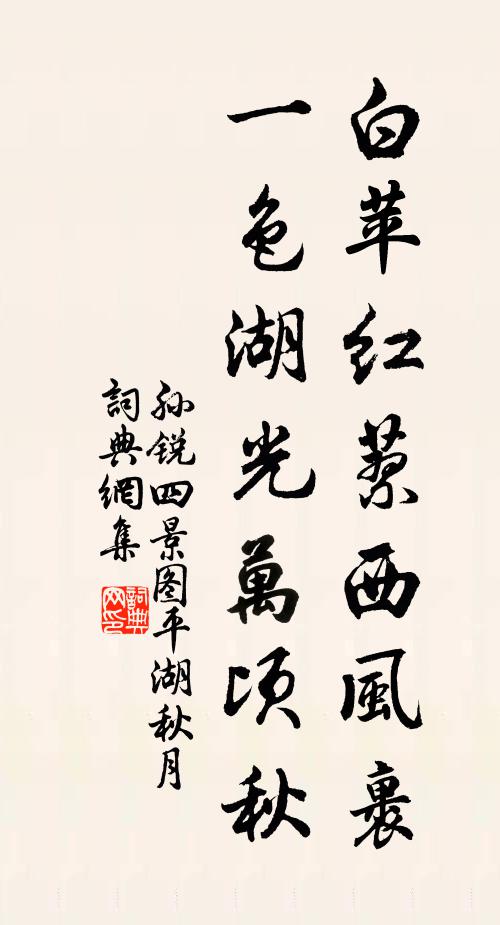 白苹红蓼西風裹
一色湖光萬頃秋
孙锐四景图平湖秋月
詞典網集
詞典网印